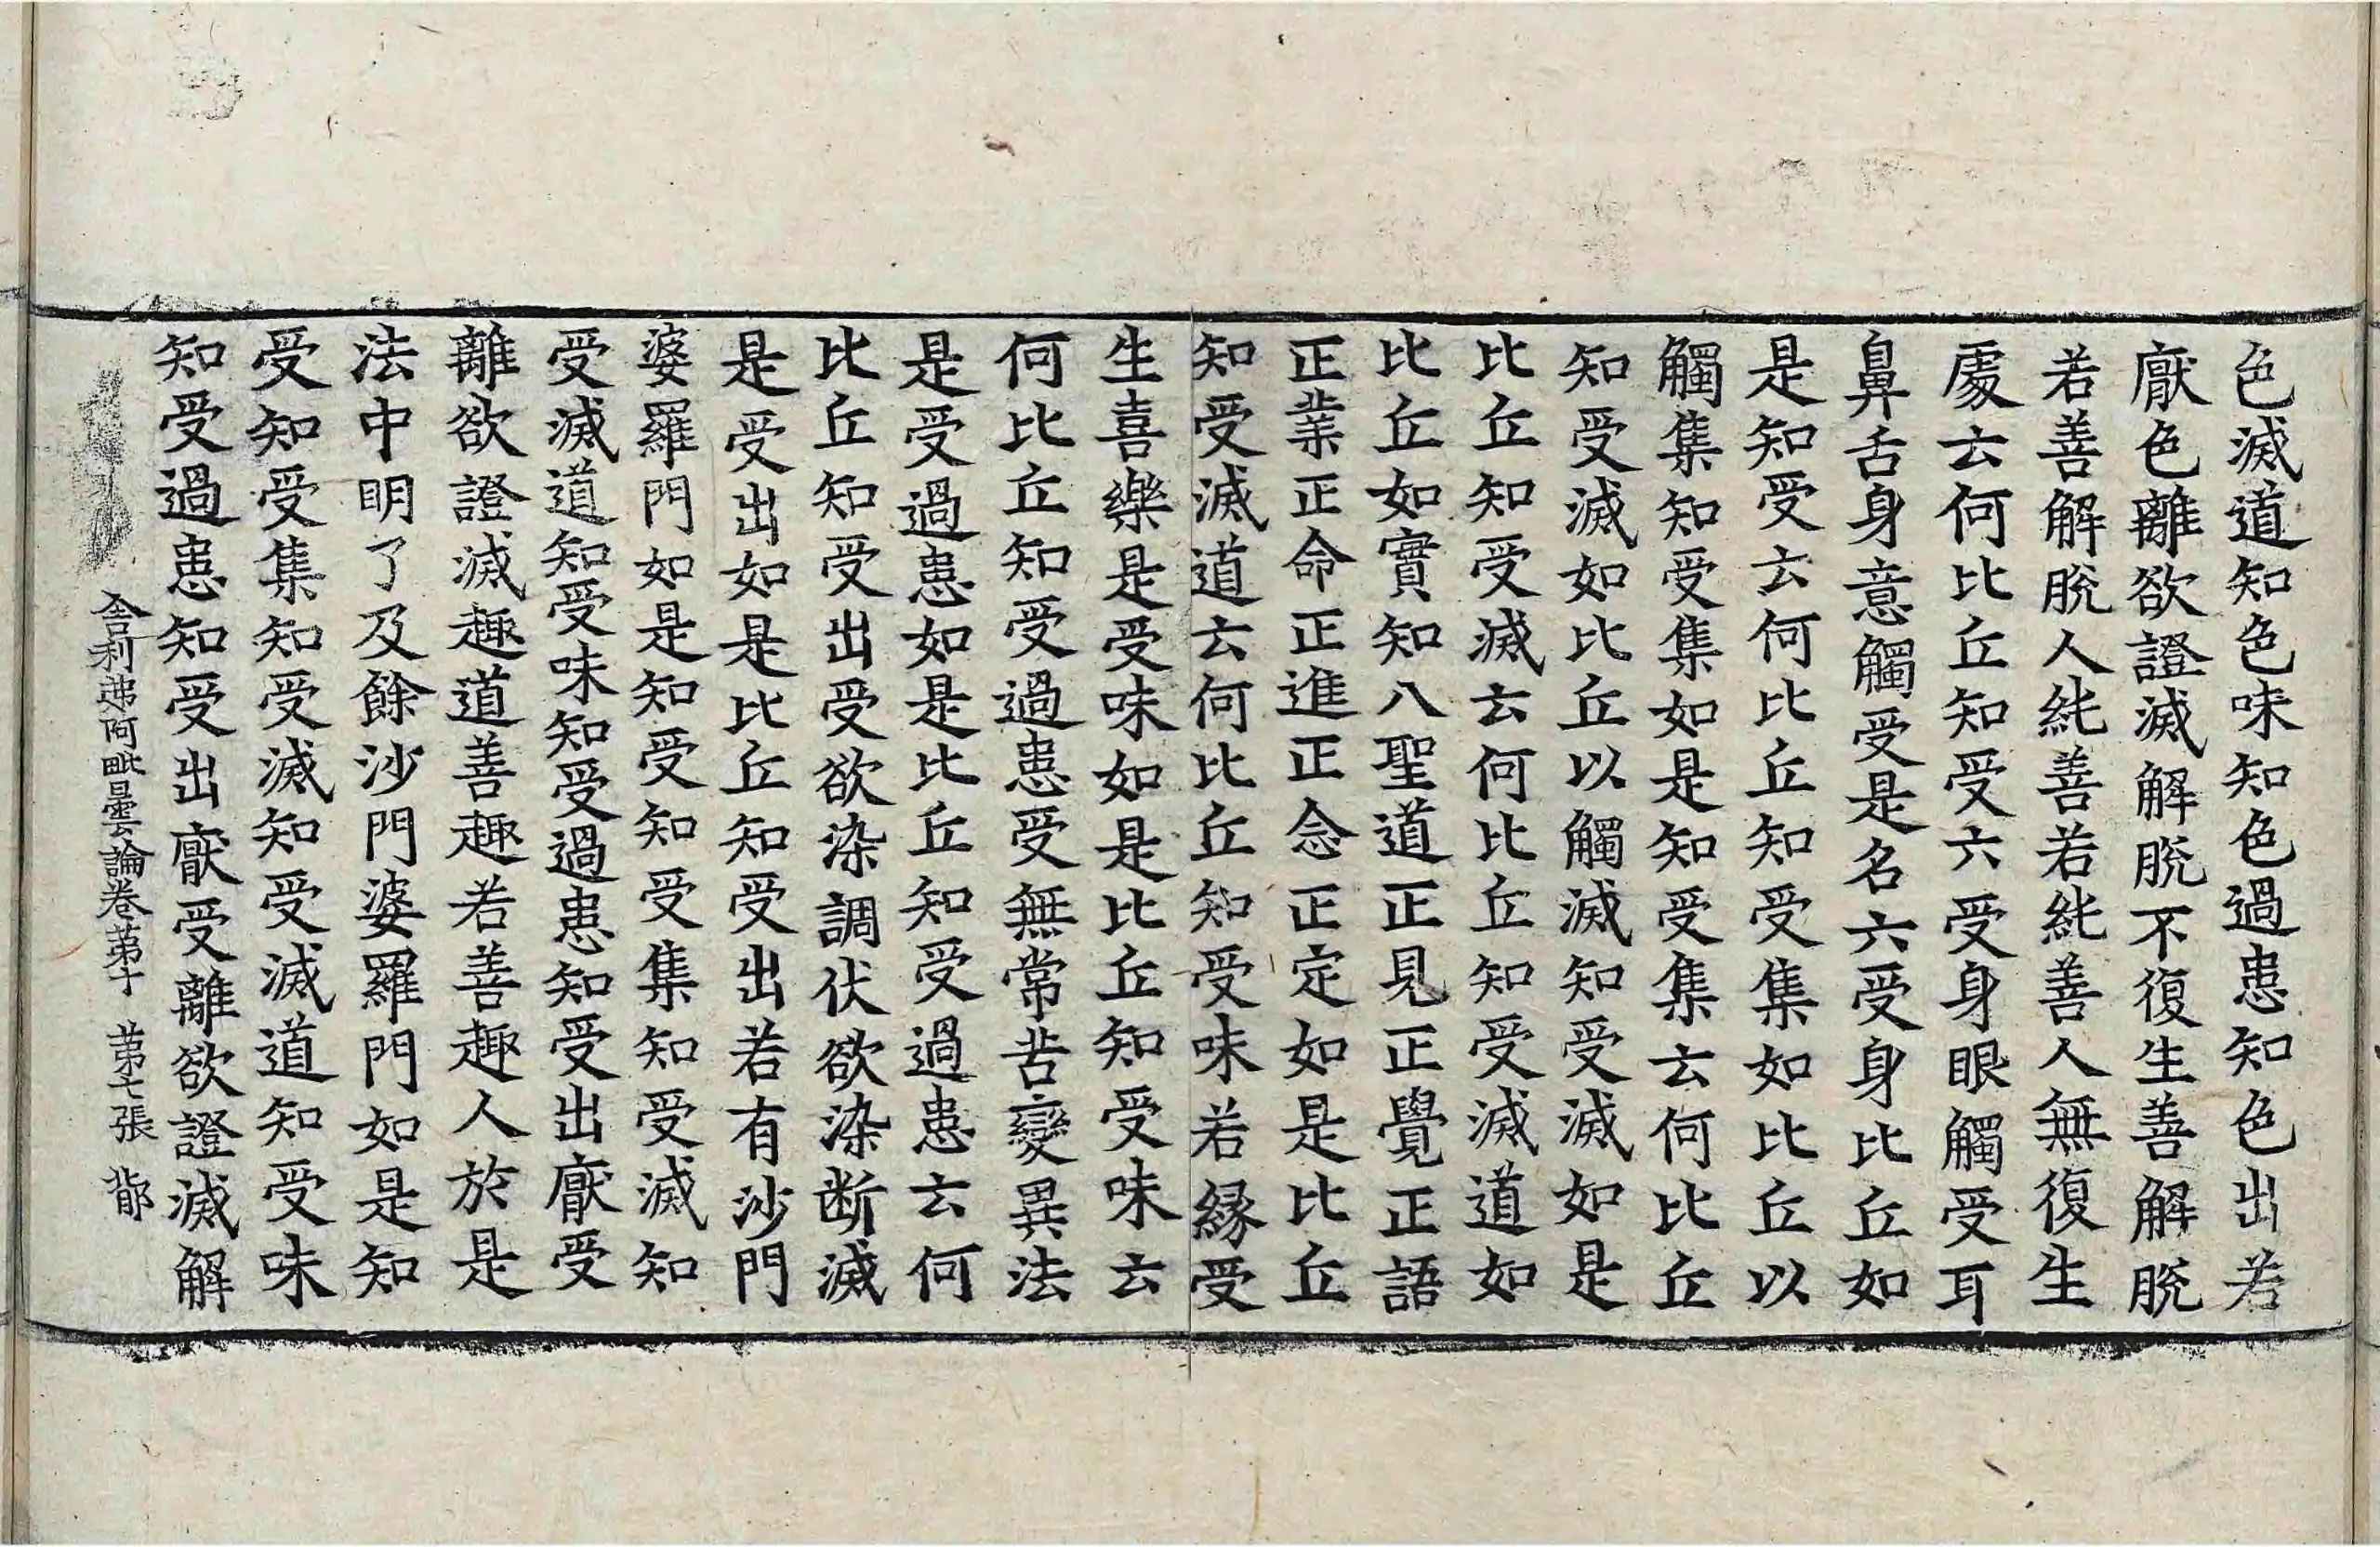 色滅道知色味知色過患知色出若
厭色離欲證滅解脫不復生善解脫
若善解脫人純善若純善人無復生
處云何比丘知受六受身眼觸受耳
鼻舌身意觸受是名六受身比丘如
是知受云何比丘知受集如比丘以
觸集知受集如是知受集云何比丘
知受滅如比丘以觸滅知受滅如是
比丘知受滅云何比丘知受滅道如
比丘如實知八聖道正見正覺正語
正業正命正進正念正定如是比丘
知受滅道云何比丘知受味若緣受
生喜樂是受味如是比丘知受味云
何比丘知受過患受無常苦變異法
是受過患如是比丘知受過患云何
比丘知受出受欲染調伏欲染断滅
是受出如是比丘知受出若有沙門
婆羅門如是知受知受集知受滅知
受滅道知受味知受過患知受出厭受
離欲證滅趣道善趣若善趣人於是
法中明了及餘沙門婆羅門如是知
受知受集知受滅知受滅道知受味
知受過患知受出厭受離欲證滅解
舍利弗阿毗曇論卷苐十 苐七張